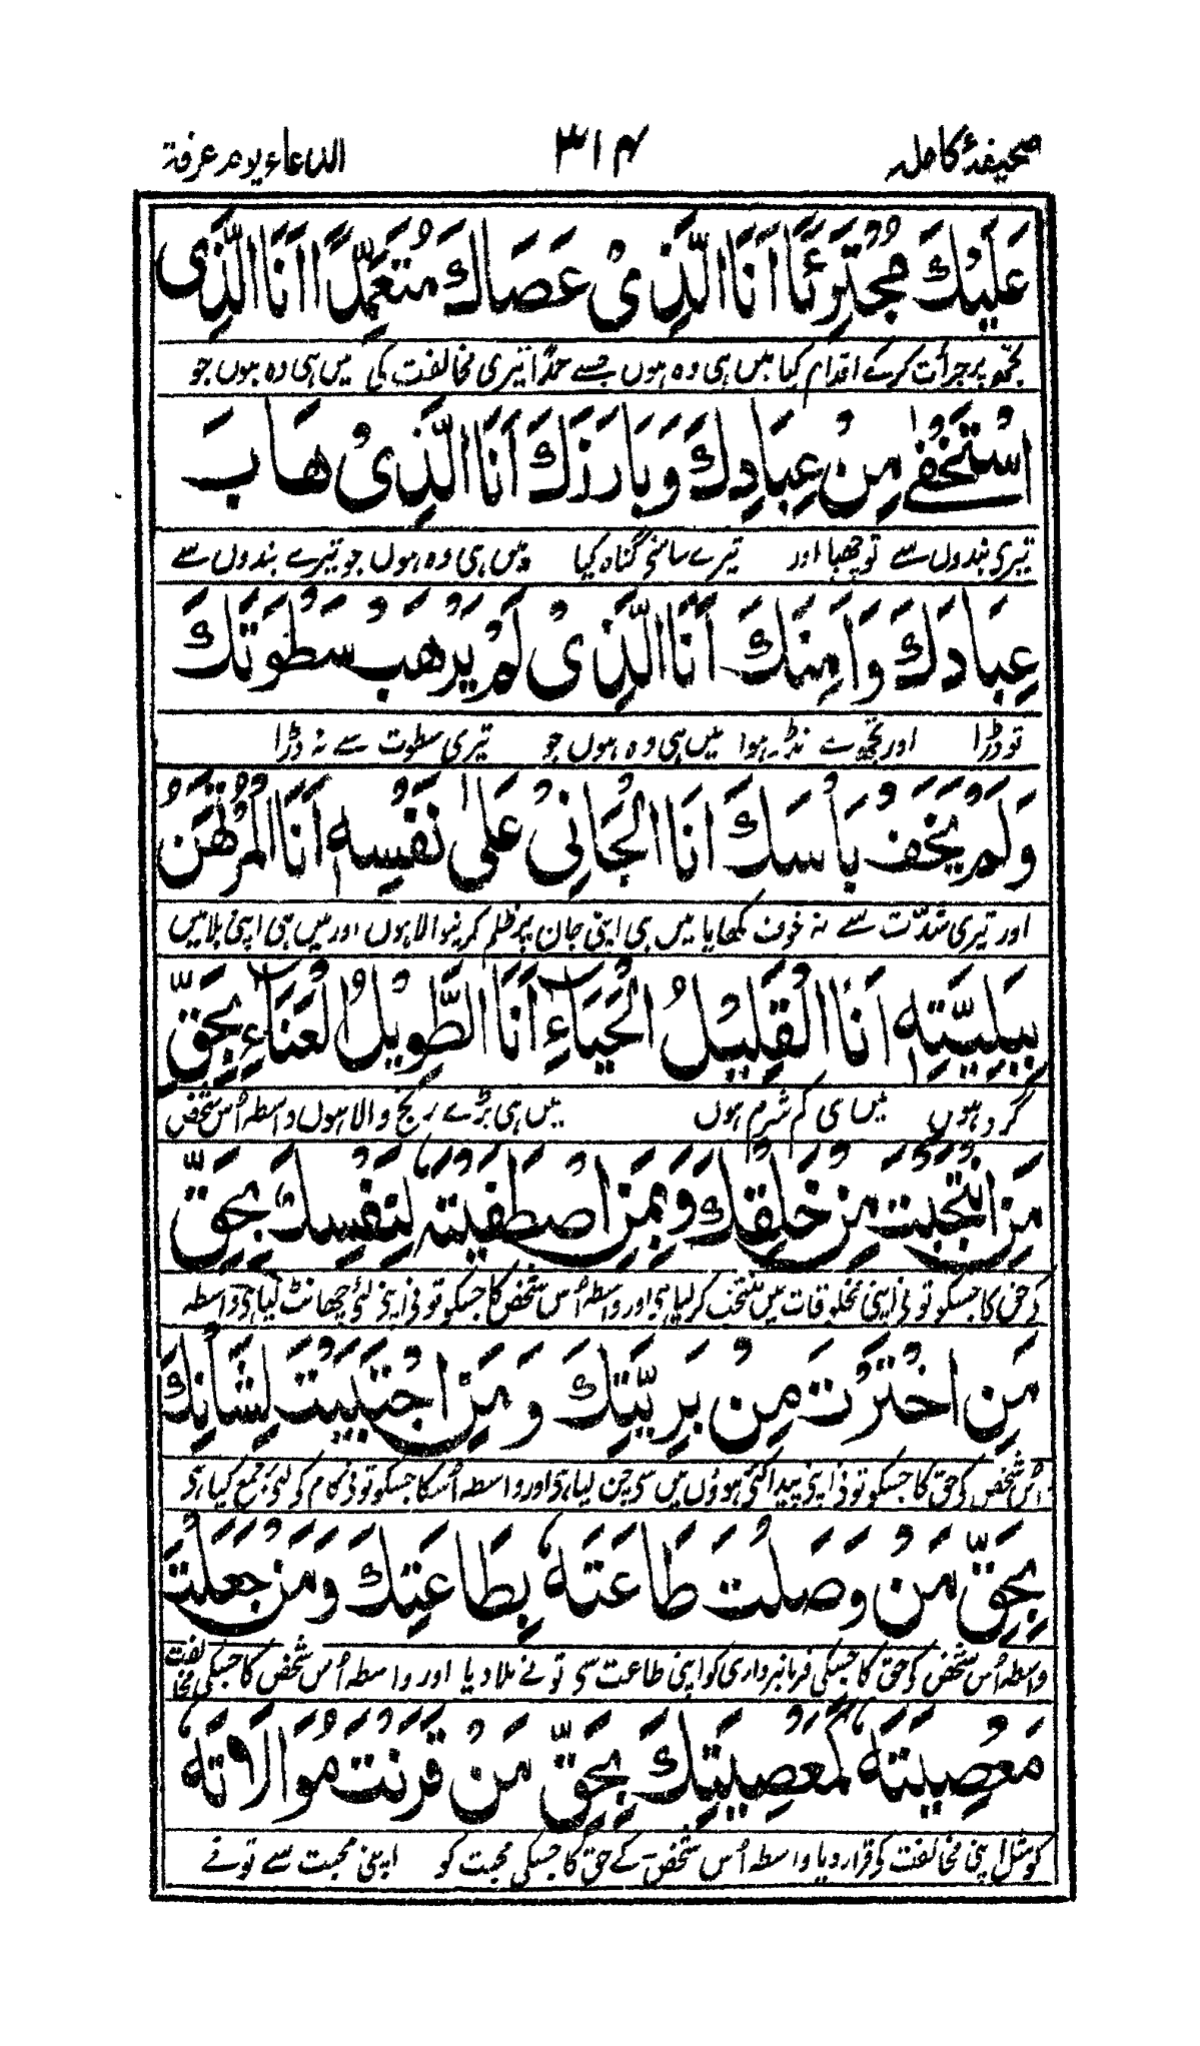 صحیفۂ کاملہ ۳۱۴ الدعاء یوم عرفۃ
عَلَيْكَ مُجْتَرِئًا اَنَا الَّذِيْ عَصَاكَ مُتَعَمِّدًا اَنَا الَّذِى
تجھ پر جرأت کر کے اقدام کیا میں ہی وہ ہوں جسنے عمداً تیری مخالفت کی میں ہی وہ ہوں جو
اسْتَخْفٰى مِنْ عِبَادِكَ وَبَارَزَكَ اَنَا الَّذِىْ هَابَ
تیری بندوں سے تو چھپا اور تیرے سامنے گناہ کیا میں ہی وہ ہوں جو تیرے بندوں سے
عِبَادَكَ وَاَمِنَكَ اَنَا الَّذِىْ لَمْ يَرْهَبْ سَطْوَتَكَ
تو ڈرا اور تجھ سے نڈر ہوا میں ہی وہ ہوں جو تیری سطوت سے نہ ڈرا
وَلَمْ يَخَفْ بَأْسَكَ اَنَا الْجَانِىْ عَلٰى نَفْسِهٖ اَنَا الْمُرْتَهَنُ
اور تیری شدّت سے نہ خوف کھایا میں ہی اپنی جان پر ظلم کرنیوالا ہوں اور میں ہی اپنی بلا میں
بِبَلِيَّتِهٖ اَنَا الْقَلِيْلُ الْحَيَاءِ اَنَا الطَّوِيْلُ الْعَنَاءِ بِحَقِّ
گرد ہوں میں ہی کم شرم ہوں میں ہی بڑے رنج والا ہوں واسطہ اُس شخص
مَنِ انْتَجَبْتَ مِنْ خَلْقِكَ وَبِمَنِ اصْطَفَيْتَهٗ لِنَفْسِكَ بِحَقِّ
کے حق کا جسکو تو نی اپنی مخلوقات میں منتخب کر لیا ہی اور واسطہ اُس شخص کا جسکو تو نی اپنی لئی چھانٹ لیا ہی واسطہ
مَنِ اخْتَرْتَ مِنْ بَرِيَّتِكَ وَمَنِ اجْتَبَيْتَ لِشَأْنِكَ
اُس شخص کی حق کا جسکو تو نی اپنی پیدا کئی ہوؤں میں سی چن لیا ہی اور واسطہ اُسکا جسکو تو نی کام کی لئی جمع کیا ہی
بِحَقِّ مَنْ وَصَلْتَ طَاعَتَهٗ بِطَاعَتِكَ وَمَنْ جَعَلْتَ
واسطہ اُس شخص کی حق کا جسکی فرمانبرداری کو اپنی طاعت سی تو نے ملا دیا اور واسطہ اُس شخص کا جسکی مخالفت
مَعْصِيَتَهٗ كَمَعْصِيَتِكَ بِحَقِّ مَنْ قَرَنْتَ مُوَالَاتَهٗ
کو مثل اپنی مخالفت کی قرار دیا واسطہ اُس شخص کے حق کا جسکی محبت کو اپنی محبت سے تو نے